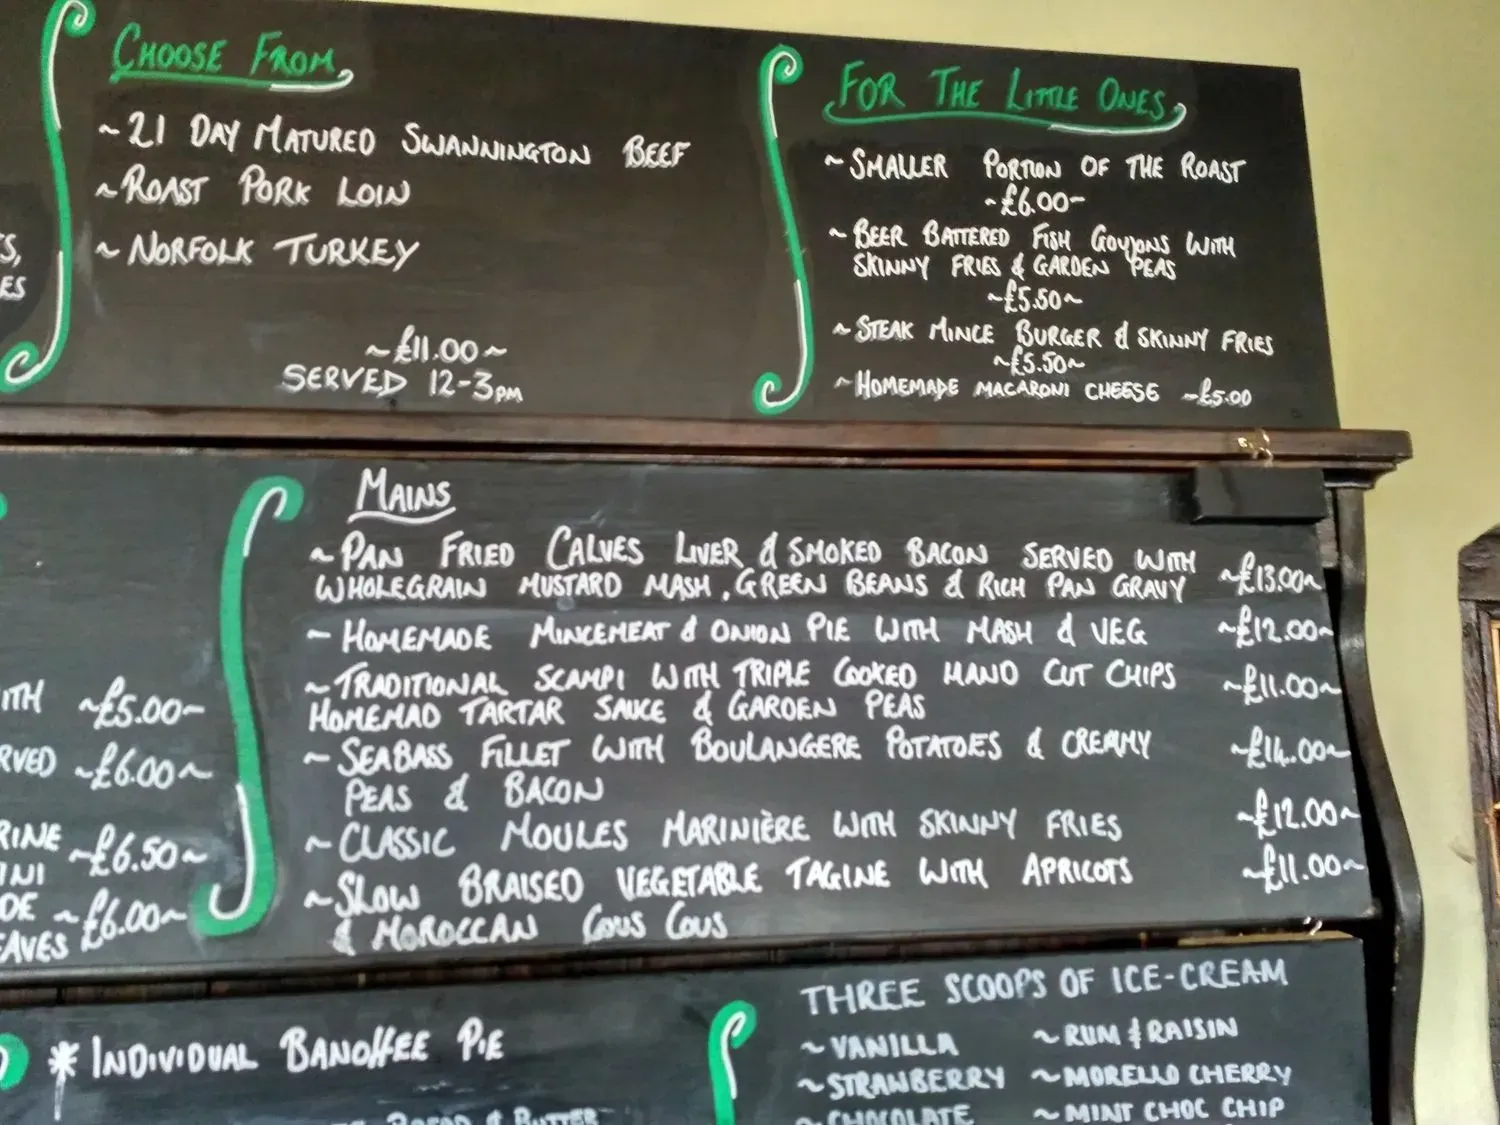 CHOOSE FROM
~21 DAY MATURED SWANNINGTON BEEF
~ROAST PORK LOIN
~NORFOLK TURKEY
~£11.00~
SERVED 12-3PM
FOR THE LITTLE ONES
~SMALLER PORTION OF THE ROAST
~£6.00~
~BEER BATTERED FISH GOUJONS WITH
SKINNY FRIES & GARDEN PEAS
~£5.50~
~STEAK MINCE BURGER & SKINNY FRIES
~£5.50~
~HOMEMADE MACARONI CHEESE ~£5.00
ES
~£5.00~
RVED ~£6.00~
~£6.50~
~£6.00~
MAINS
~PAN FRIED CALVES LIVER & SMOKED BACON SERVED WITH
WHOLEGRAIN MUSTARD MASH, GREEN BEANS & RICH PAN GRAVY ~£13.00~
~HOMEMADE MINCEMEAT & ONION PIE WITH MASH & VEG ~£12.00~
~TRADITIONAL SCAMPI WITH TRIPLE COOKED HAND CUT CHIPS ~£11.00~
HOMEMAD TARTAR SAUCE & GARDEN PEAS
~SEABASS FILLET WITH BOULANGERE POTATOES & CREAMY ~£14.00~
PEAS & BACON
~CLASSIC MOULES MARINIÈRE WITH SKINNY FRIES ~£12.00~
~SLOW BRAISED VEGETABLE TAGINE WITH APRICOTS ~£11.00~
& MOROCCAN COUS COUS
* INDIVIDUAL BANOFFEE PIE
BREAD & BUTTER
THREE SCOOPS OF ICE-CREAM
~VANILLA ~RUM & RAISIN
~STRAWBERRY ~MORELLO CHERRY
~CHOCOLATE ~MINT CHOC CHIP